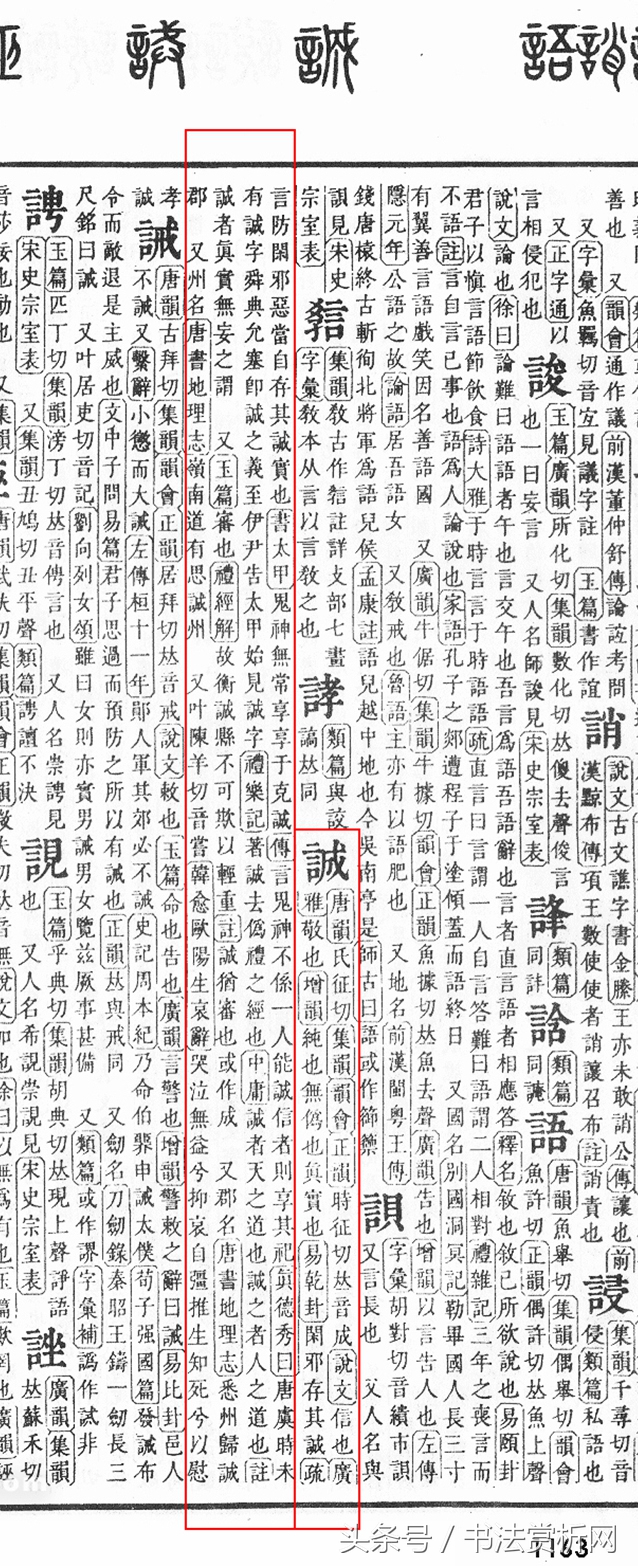 誚 語 誠
善也 又韻會通作議前漢董仲舒傳論誼考問
又字彙魚羈切音宐見議字註 玉篇書作誼
誚 說文古文譙字書金縢王亦未敢誚公傳讓也前
漢黥布傳項王數使使者誚讓召布註誚責也
集韻千尋切音
侵類篇私語也
又正字通以
言相侵犯也
誜 玉篇廣韻所化切集韻數化切𠀤傻去聲俊言
也一曰妄言 又人名師誜見宋史宗室表
類篇
同詳
類篇
同譀
語 唐韻魚舉切集韻偶舉切韻會
魚許切正韻偶許切𠀤魚上聲
說文論也徐曰論難曰語語者午也言交午也吾言爲語吾語辭也言者直言語者相應答釋名敘也敘己所欲說也易頤卦
君子以愼言語節飮食詩大雅于時言言于時語語疏直言曰言謂一人自言答難曰語謂二人相對禮雜記三年之喪言而
不語註言自言已事也語爲人論說也家語孔子之郯遭程子于塗傾蓋而語終日 又國名別國洞冥記勒畢國人長三寸
有翼善言語戲笑因名善語國 又廣韻牛倨切集韻牛據切韻會正韻魚據切𠀤魚去聲廣韻告也增韻以言告人也左傳
隱元年公語之故論語居吾語女 又敎戒也魯語主亦有以語肥也 又地名前漢閩粵王傳
錢唐榬終古斬徇北將軍爲語兒侯孟康註語兒越中地也今吳南亭是師古曰語或作篽籞
字彙胡對切音繢市誢
又言長也 又人名與
誢見宋史
宗室表
集韻敎古作𢽾註詳攴部七畫
字彙敎本从言以言敎之也
誟 類篇與詨
謞𠀤同
誠 唐韻氏征切集韻韻會正韻時征切𠀤音成說文信也廣
雅敬也增韻純也無僞也眞實也易乾卦閑邪存其誠疏
言防閑邪惡當自存其誠實也書太甲鬼神無常享享于克誠傳言鬼神不係一人能誠信者則享其祀眞德秀曰唐虞時未
有誠字舜典允塞卽誠之義至伊尹告太甲始見誠字禮樂記著誠去僞禮之經也中庸誠者天之道也誠之者人之道也註
誠者眞實無妄之謂 又玉篇審也禮經解故衡誠縣不可欺以輕重註誠猶審也或作成 又郡名唐書地理志悉州歸誠
郡 又州名唐書地理志嶺南道有思誠州 又叶陳羊切音嘗韓愈歐陽生哀辭哭泣無益兮抑哀自彊推生知死兮以慰
孝誠
誡 唐韻古拜切集韻韻會正韻居拜切𠀤音戒說文敕也玉篇命也告也廣韻言警也增韻警敕之辭曰誡易比卦邑人
不誡又繫辭小懲而大誡左傳桓十一年鄖人軍其郊必不誡史記周本紀乃命伯臩申誡太僕荀子强國篇發誡布
令而敵退是主威也文中子問易篇君子思過而預防之所以有誡也正韻𠀤與戒同 又劒名刀劒錄秦昭王鑄一劒長三
尺銘曰誡 又叶居吏切音記劉向列女頌雖曰女則亦實男誡男女覽茲厥事甚備 又類篇或作諽字彙補譌作誋非
玉篇匹丁切集韻滂丁切𠀤音俜言也 又人名崇䛣見
宋史宗室表 又集韻丑鳩切丑平聲類篇䛣譠不決
誢 玉篇乎典切集韻胡典切𠀤現上聲諍語
也 又人名希誢崇誢見宋史宗室表
廣韻集韻
𠀤蘇禾切
1163
头条号 / 书法赏析网